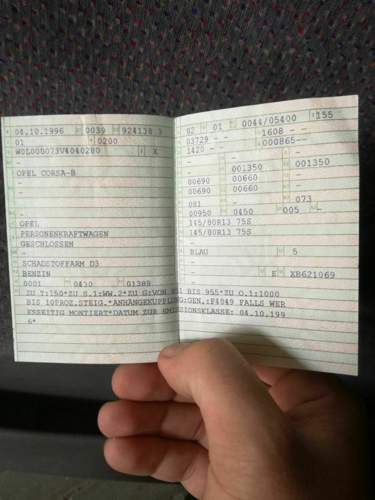 04.10.1996 0039 924134 3
01 0200
X
OPEL CORSA-B
-
-
-
OPEL
PERSONENKRAFTWAGEN
GESCHLOSSEN
-
SCHADSTOFFARM D3
BENZIN
0001 0430 01389
02 01 0044/05400 155
03729 - - 1608 - -
1420 - - 000865--
-
- 001350 001350
00690 00660 -
00690 00660 -
- -
081 - 073
00950 0450 005 -
145/80R13 75S
145/80R13 75S
-
-
BLAU 5
-
E XB621069
ZU T:150*ZU S.1:WW.2*ZU G:VON BIS 955*ZU O.1:1000
BIS 10PROZ.STEIG.*ANHÄNGEKUPPLUNG:GEN.:F4049 FALLS WER
KSSEITIG MONTIERT*DATUM ZUR EMISSIONSKLASSE: 04.10.199
6*